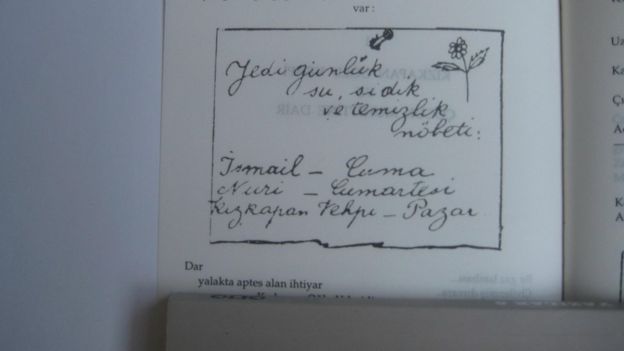 var :
Yedi günlük
su, sidik
ve temizlik
nöbeti:
İsmail – Cuma
Nuri – Cumartesi
Kızkapan Vehpi – Pazar
Dar
yalakta aptes alan ihtiyar
Uz
Ka